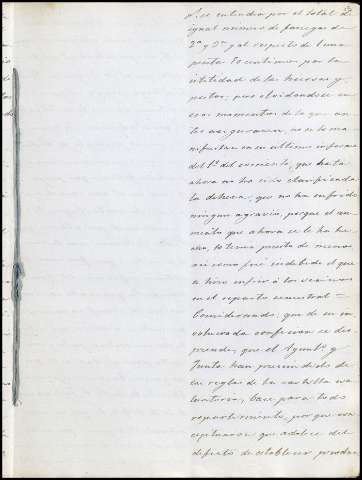 se entendia por el total de
igual número de fanegas de
2ª y 3ª y al respecto de 1 una
peseta 50 centimos por la
utilidad de las huertas y
pastos; pero olvidandose en
esos momentos de lo que an-
tes aseguraron, no en lo ma-
nifiestan en su ultimo informe
del 1º del corriente, que hasta
ahora no ha sido clasificada
la dehesa, que no ha sufrido
ningun agravio, porque el au-
mento que ahora se le ha he-
cho, lo tenia puesto de menos
asi como fué indebido el que
se hizo sufrir á los vecinos
en el reparto semestral=
Considerando: que de su in-
volucrada confesion se des-
prende, que el Ayuntº y
Junta han prescindido de
las reglas de la cartilla eva-
luatoria, base para todo
repartimiento, porque con-
ceptuaron que adolece del
defecto de establecer